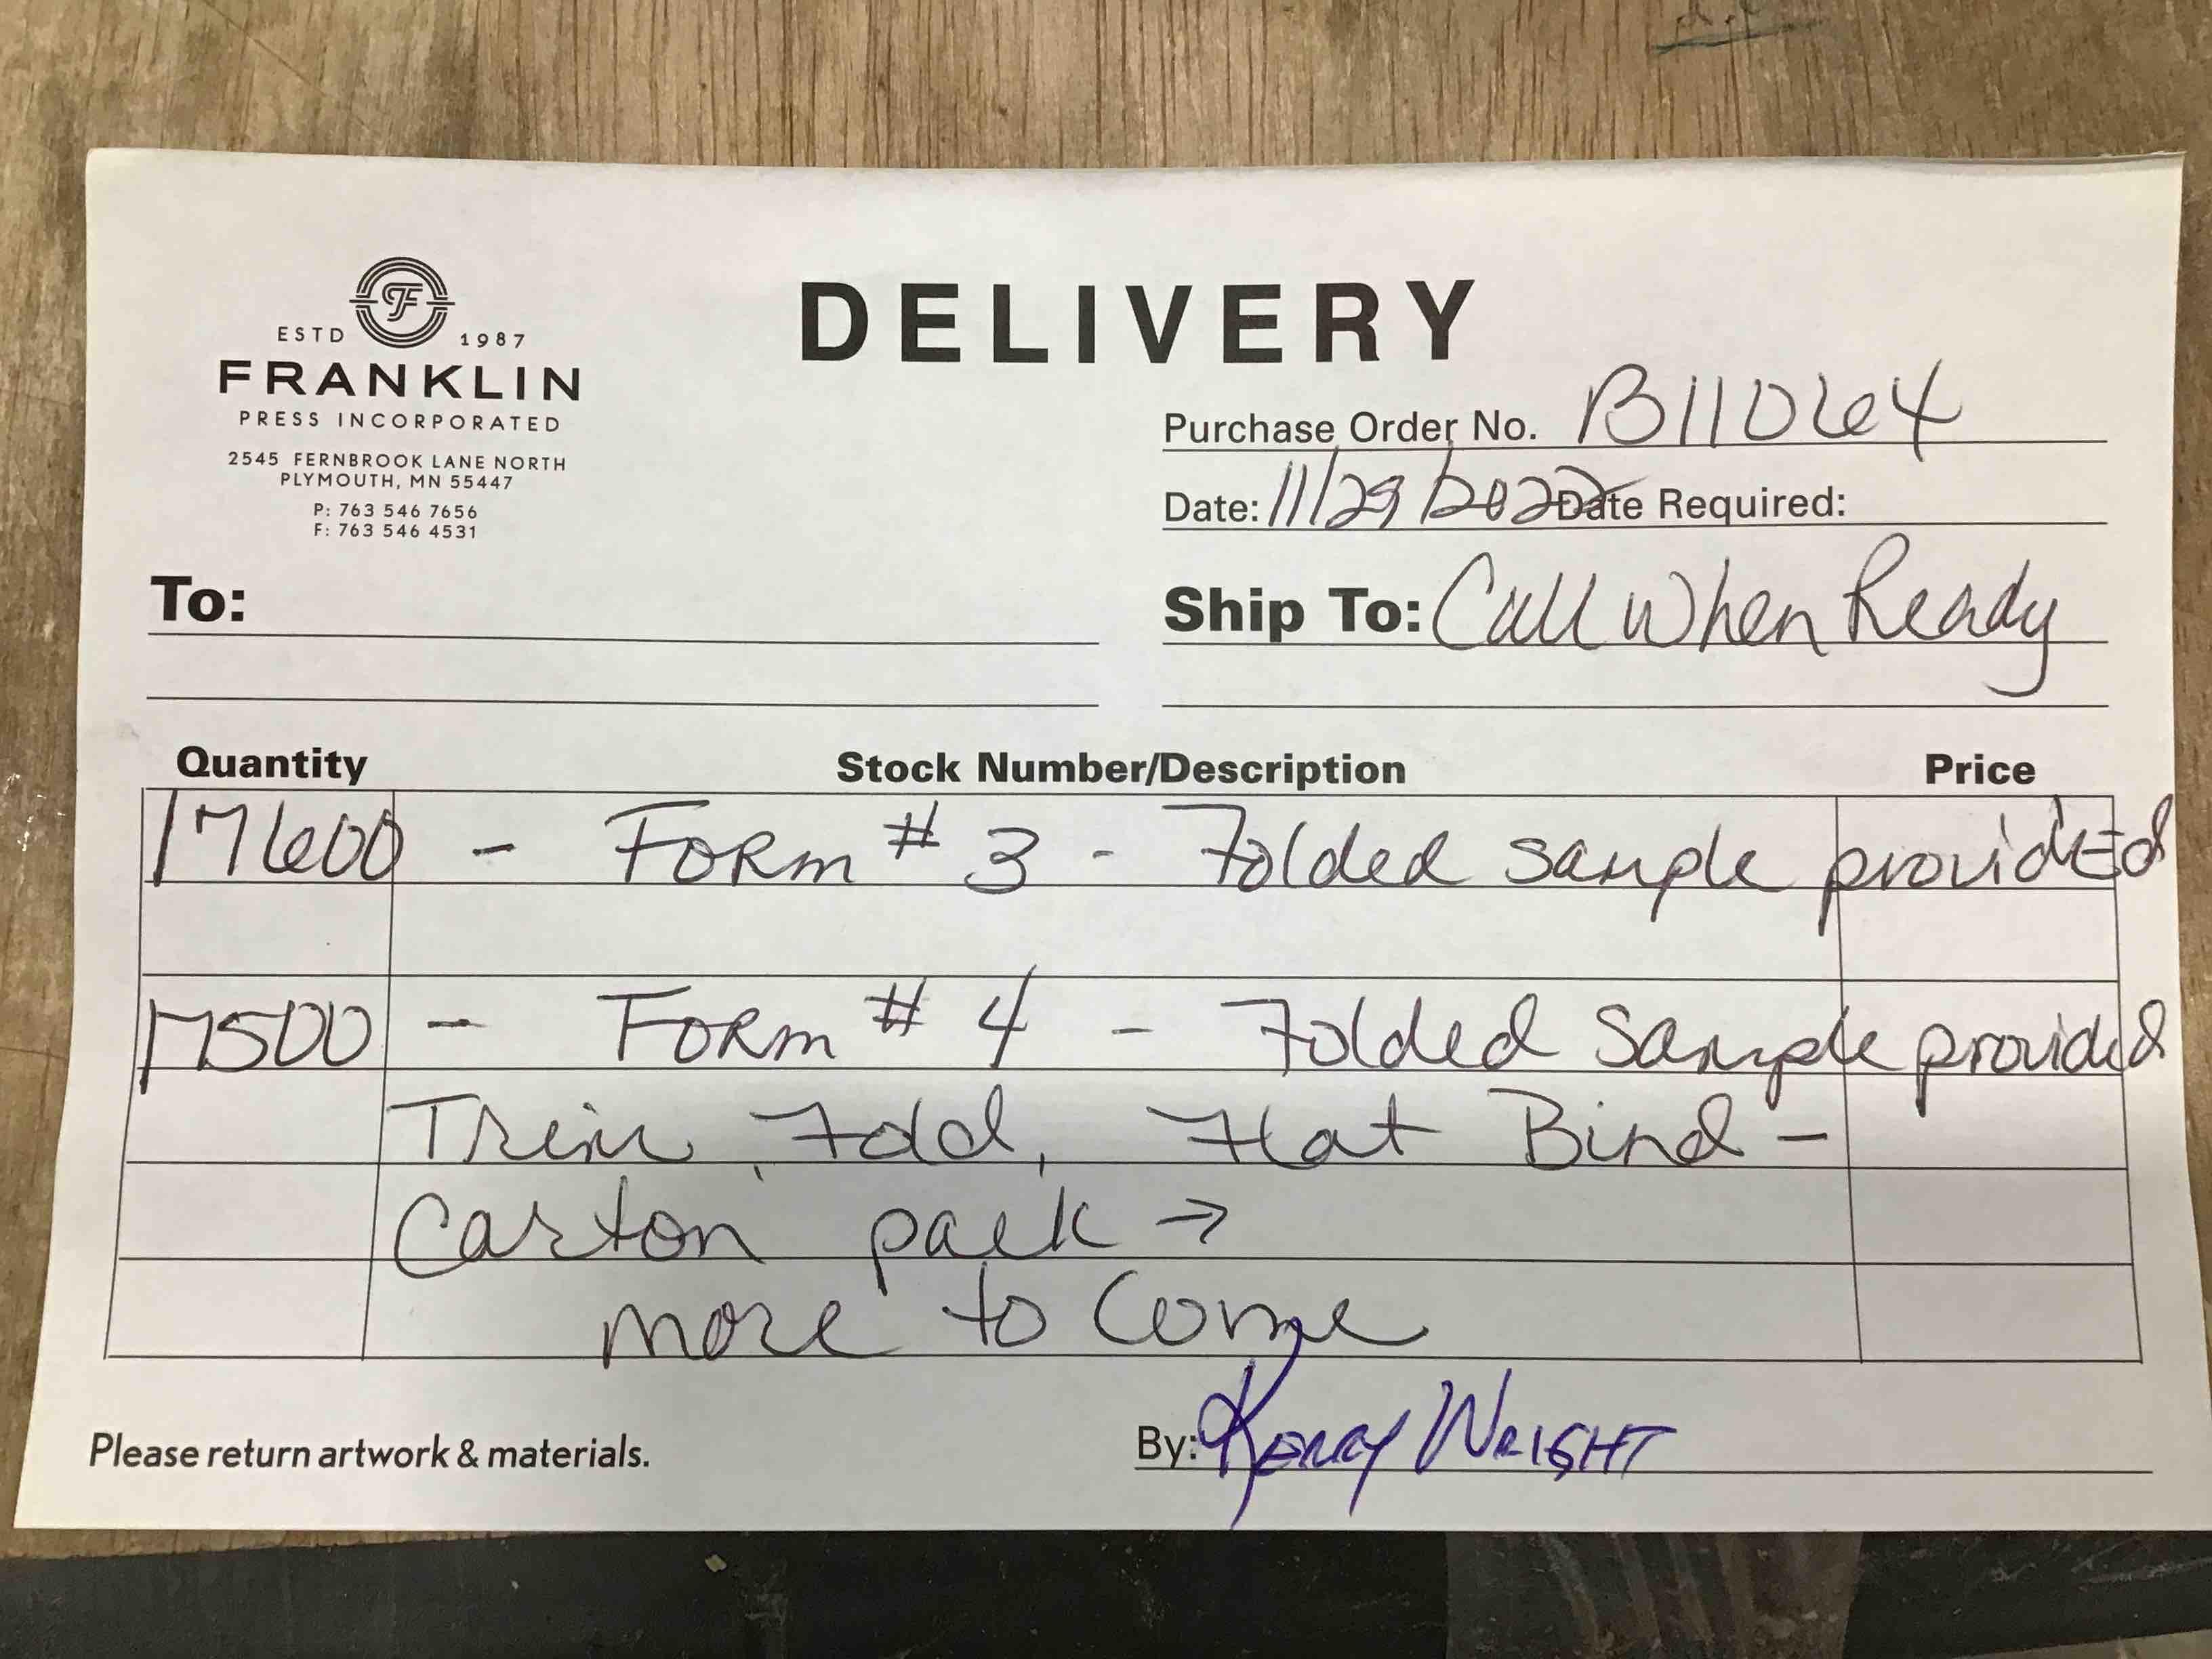 ESTD 1987
FRANKLIN
PRESS INCORPORATED
2545 FERNBROOK LANE NORTH
PLYMOUTH, MN 55447
P: 763 546 7656
F: 763 546 4531
DELIVERY
Purchase Order No. B110664
Date: 11/29/2022 Date Required:
To:
Ship To: Call When Ready
Quantity Stock Number/Description Price
17600 - FORM # 3 - Folded sample provided
17500 - FORM # 4 - Folded Sample provided
Trim, Fold, Flat Bind -
Carton pack →
more to Come
Please return artwork & materials.
By: KERRY WRIGHT